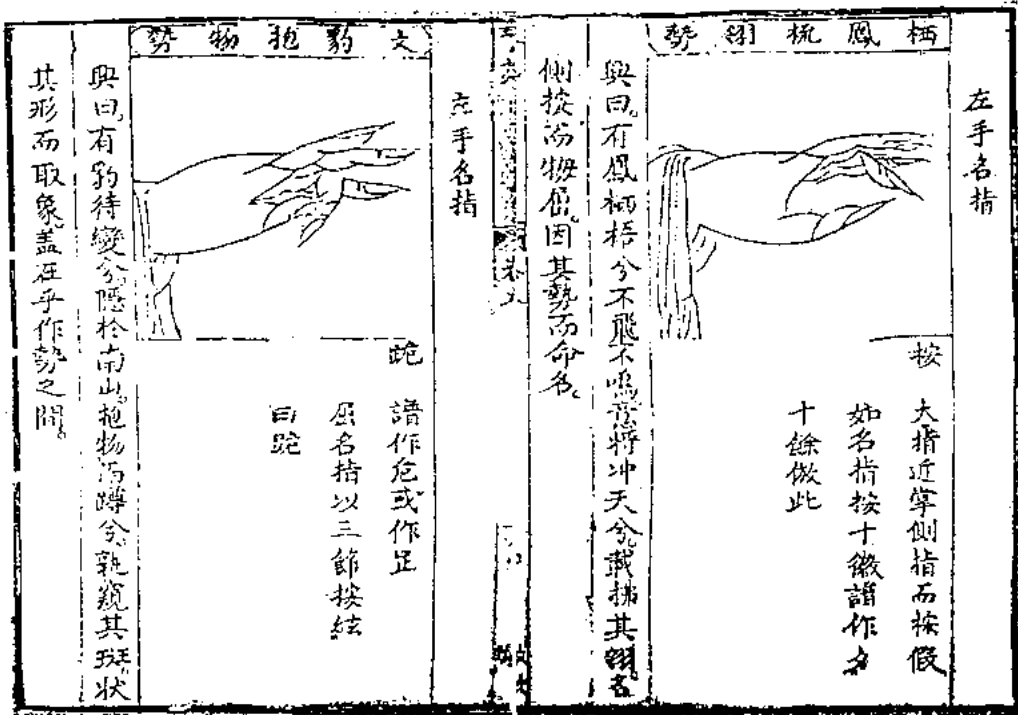 栖鳳梳翎勢
左手名指
按
大指近掌側指而按假
如名指按十徽譜作夕
十餘倣此
興曰有鳳栖梧兮不飛不鳴意將冲天兮載拂其翎名
側按而物似因其勢而命名
卷九
文豹抱物勢
左手名指
跪
譜作危或作𧾷
屈名指以三節按絃
曰跪
興曰有豹待變兮隱於南山抱物而蹲兮孰窺其斑狀
其形而取象蓋在乎作勢之間